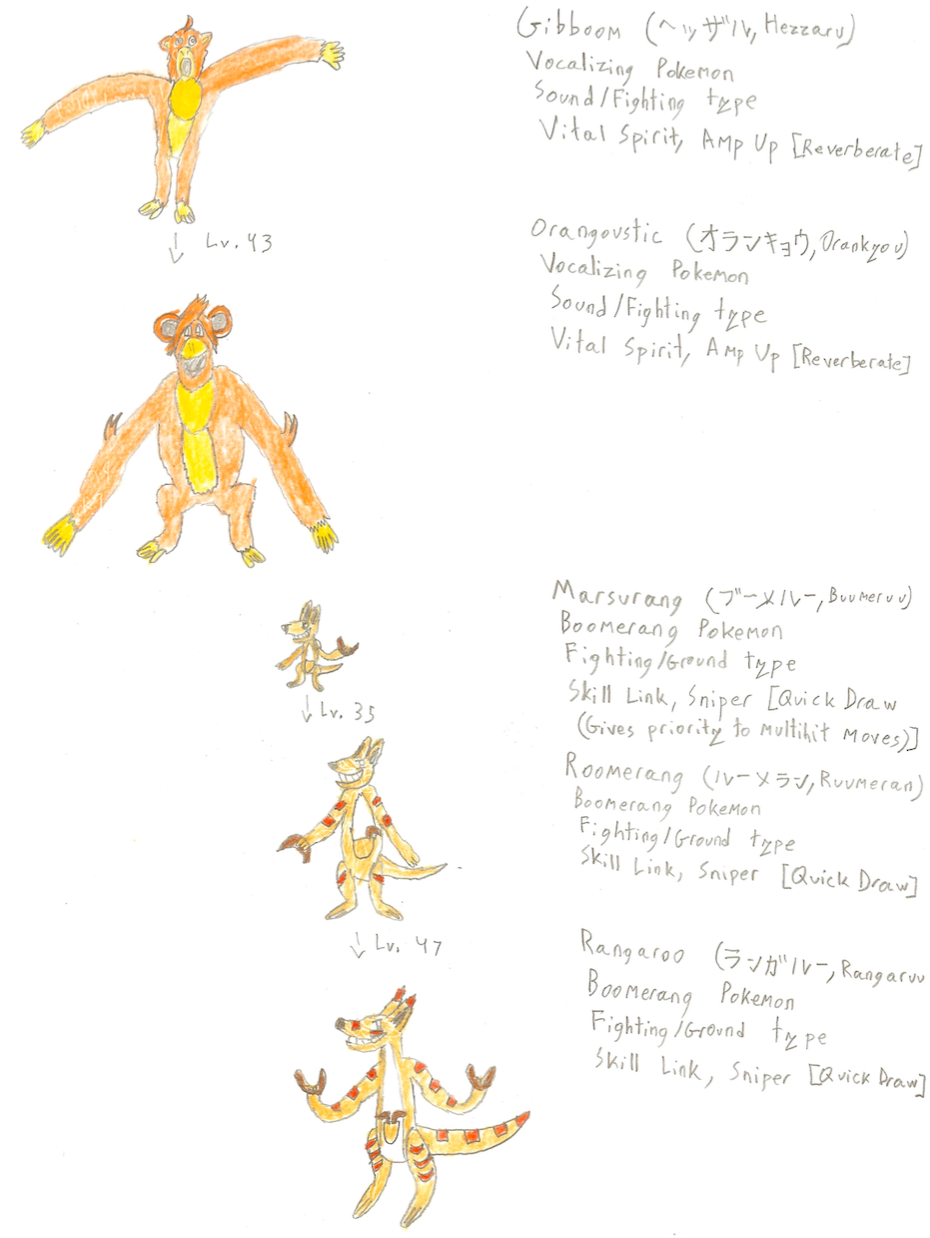 Gibboom (ヘッザル, Hezzaru)
Vocalizing Pokemon
Sound/Fighting type
Vital Spirit, Amp Up [Reverberate]
Lv. 43
Orangoustic (オランキョウ, Orankyou)
Vocalizing Pokemon
Sound/Fighting type
Vital Spirit, Amp Up [Reverberate]
Marsurang (ブーメルー, Buumeruu)
Boomerang Pokemon
Fighting/Ground type
Skill Link, Sniper [Quick Draw
(Gives priority to multihit moves)]
Lv. 35
Roomerang (ルーメラン, Ruumeran)
Boomerang Pokemon
Fighting/Ground type
Skill Link, Sniper [Quick Draw]
Lv. 47
Rangaroo (ランガルー, Rangaruu
Boomerang Pokemon
Fighting/Ground type
Skill Link, Sniper [Quick Draw]